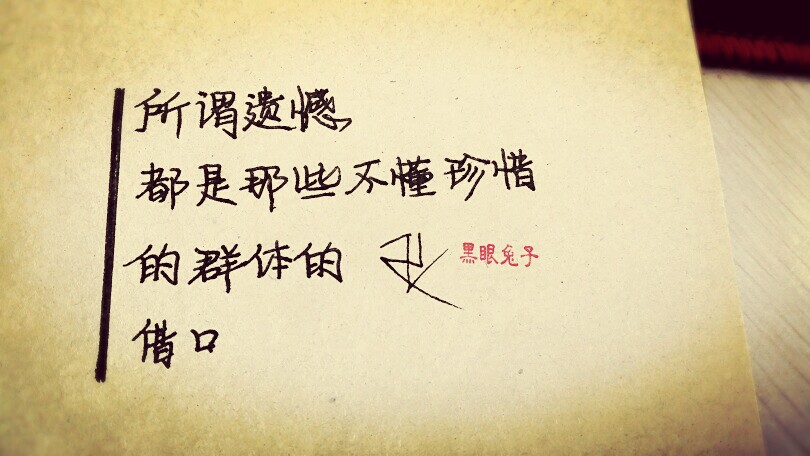 所谓遗憾,
都是那些不懂珍惜
的群体的
黑眼兔子
借口